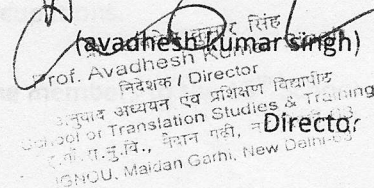 (avadhesh kumar singh)
Prof. Avadhesh Kumar
निदेशक / Director
अनुवाद अध्ययन एवं प्रशिक्षण विद्यापीठ
School of Translation Studies & Training
Director
इ.गां.रा.मु.वि., मैदान गढ़ी,
IGNOU, Maidan Garhi, New Delhi-68